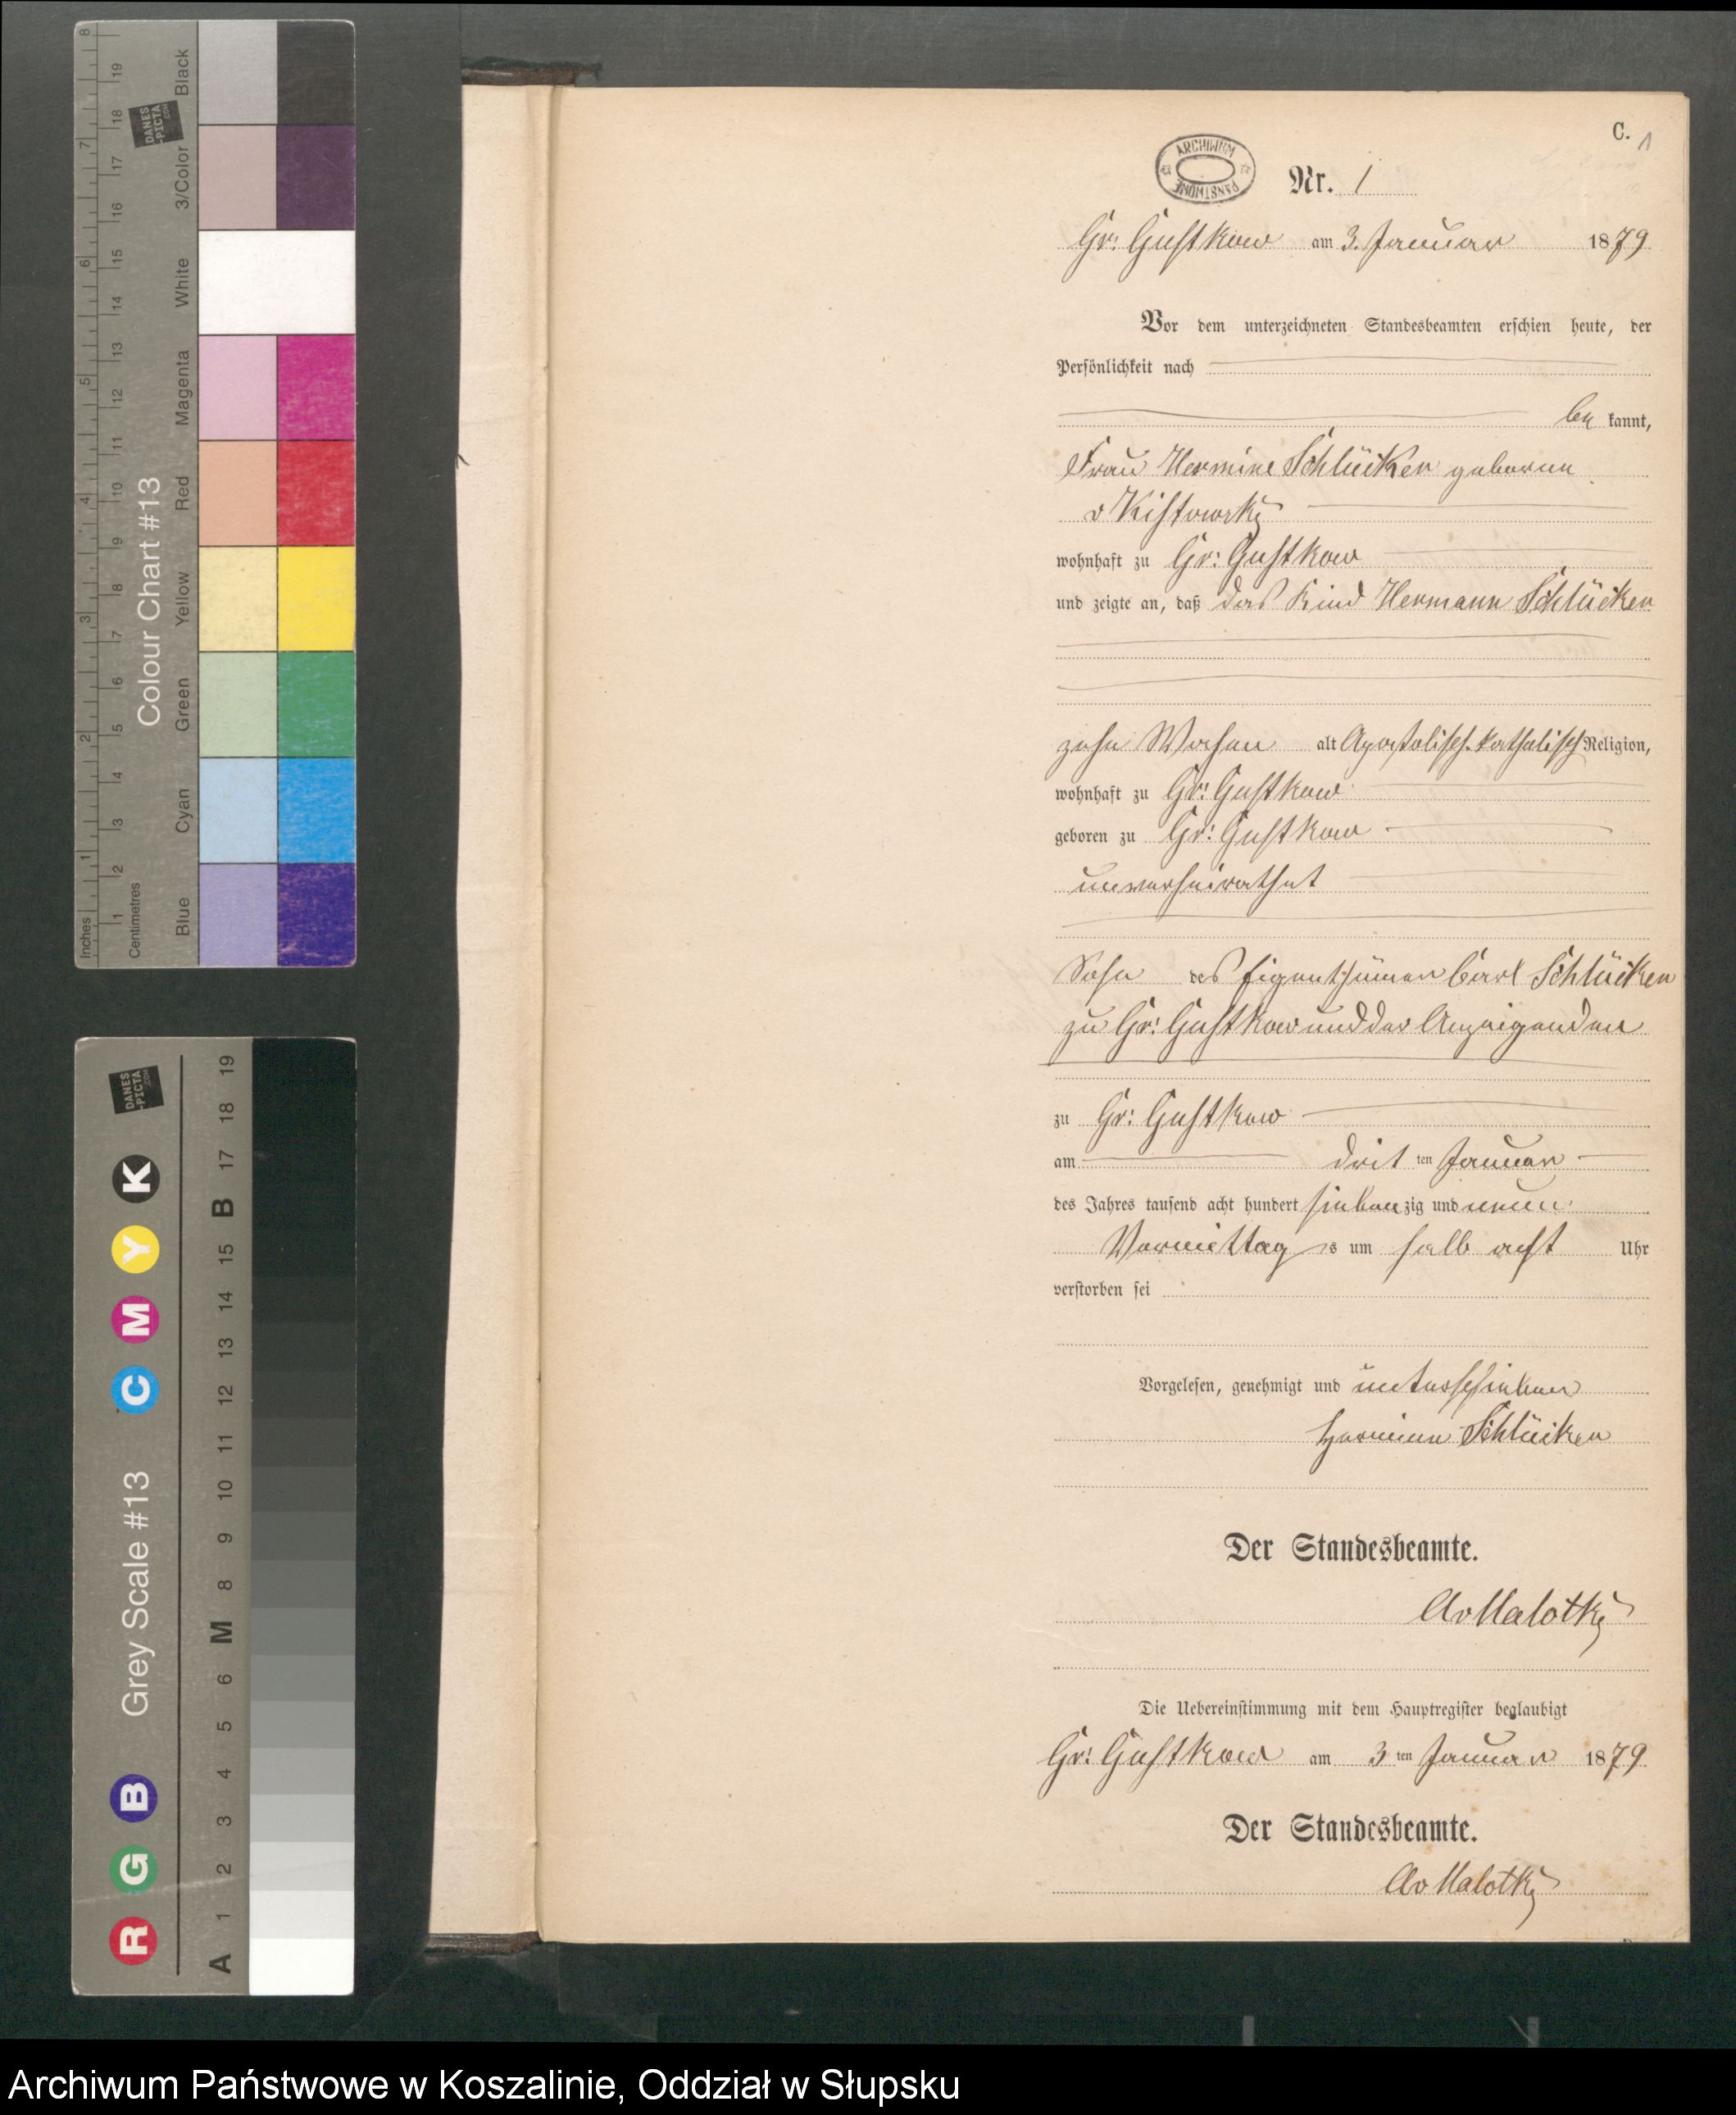 C. 1
ARCHIWUM PAŃSTWOWE
Nr. 1
Gr: Gustkow am 3. Januar 1879
Vor dem unterzeichneten Standesbeamten erschien heute, der
Persönlichkeit nach
be kannt,
Frau Hermine Schlücker geborene
v Kistowsky
wohnhaft zu Gr: Gustkow
und zeigte an, daß das Kind Hermann Schlücker
zehn Wochen alt Apostolisch-katholisch Religion,
wohnhaft zu Gr: Gustkow
geboren zu Gr: Gustkow
unverheirathet
Sohn des Eigenthümer Carl Schlücker
zu Gr: Gustkow und der Anzeigenden
zu Gr: Gustkow
am drit ten Januar
des Jahres tausend acht hundert siebenzig und neun
Vormittag s um halb acht Uhr
verstorben sei
Vorgelesen, genehmigt und unterschrieben
Hermine Schlücker
Der Standesbeamte.
AvMalotky
Die Uebereinstimmung mit dem Hauptregister beglaubigt
Gr: Gustkow am 3 ten Januar 1879
Der Standesbeamte.
AvMalotky
Inches 1 2 3 4 5 6 7 8
Centimetres 1 2 3 4 5 6 7 8 9 10 11 12 13 14 15 16 17 18 19
DANES-PICTA.COM
Colour Chart #13
Blue Cyan Green Yellow Red Magenta White 3/Color Black
Grey Scale #13
DANES-PICTA.COM
R G B C M Y K
A 1 2 3 4 5 6 M 8 9 10 11 12 13 14 15 B 17 18 19
Archiwum Państwowe w Koszalinie, Oddział w Słupsku